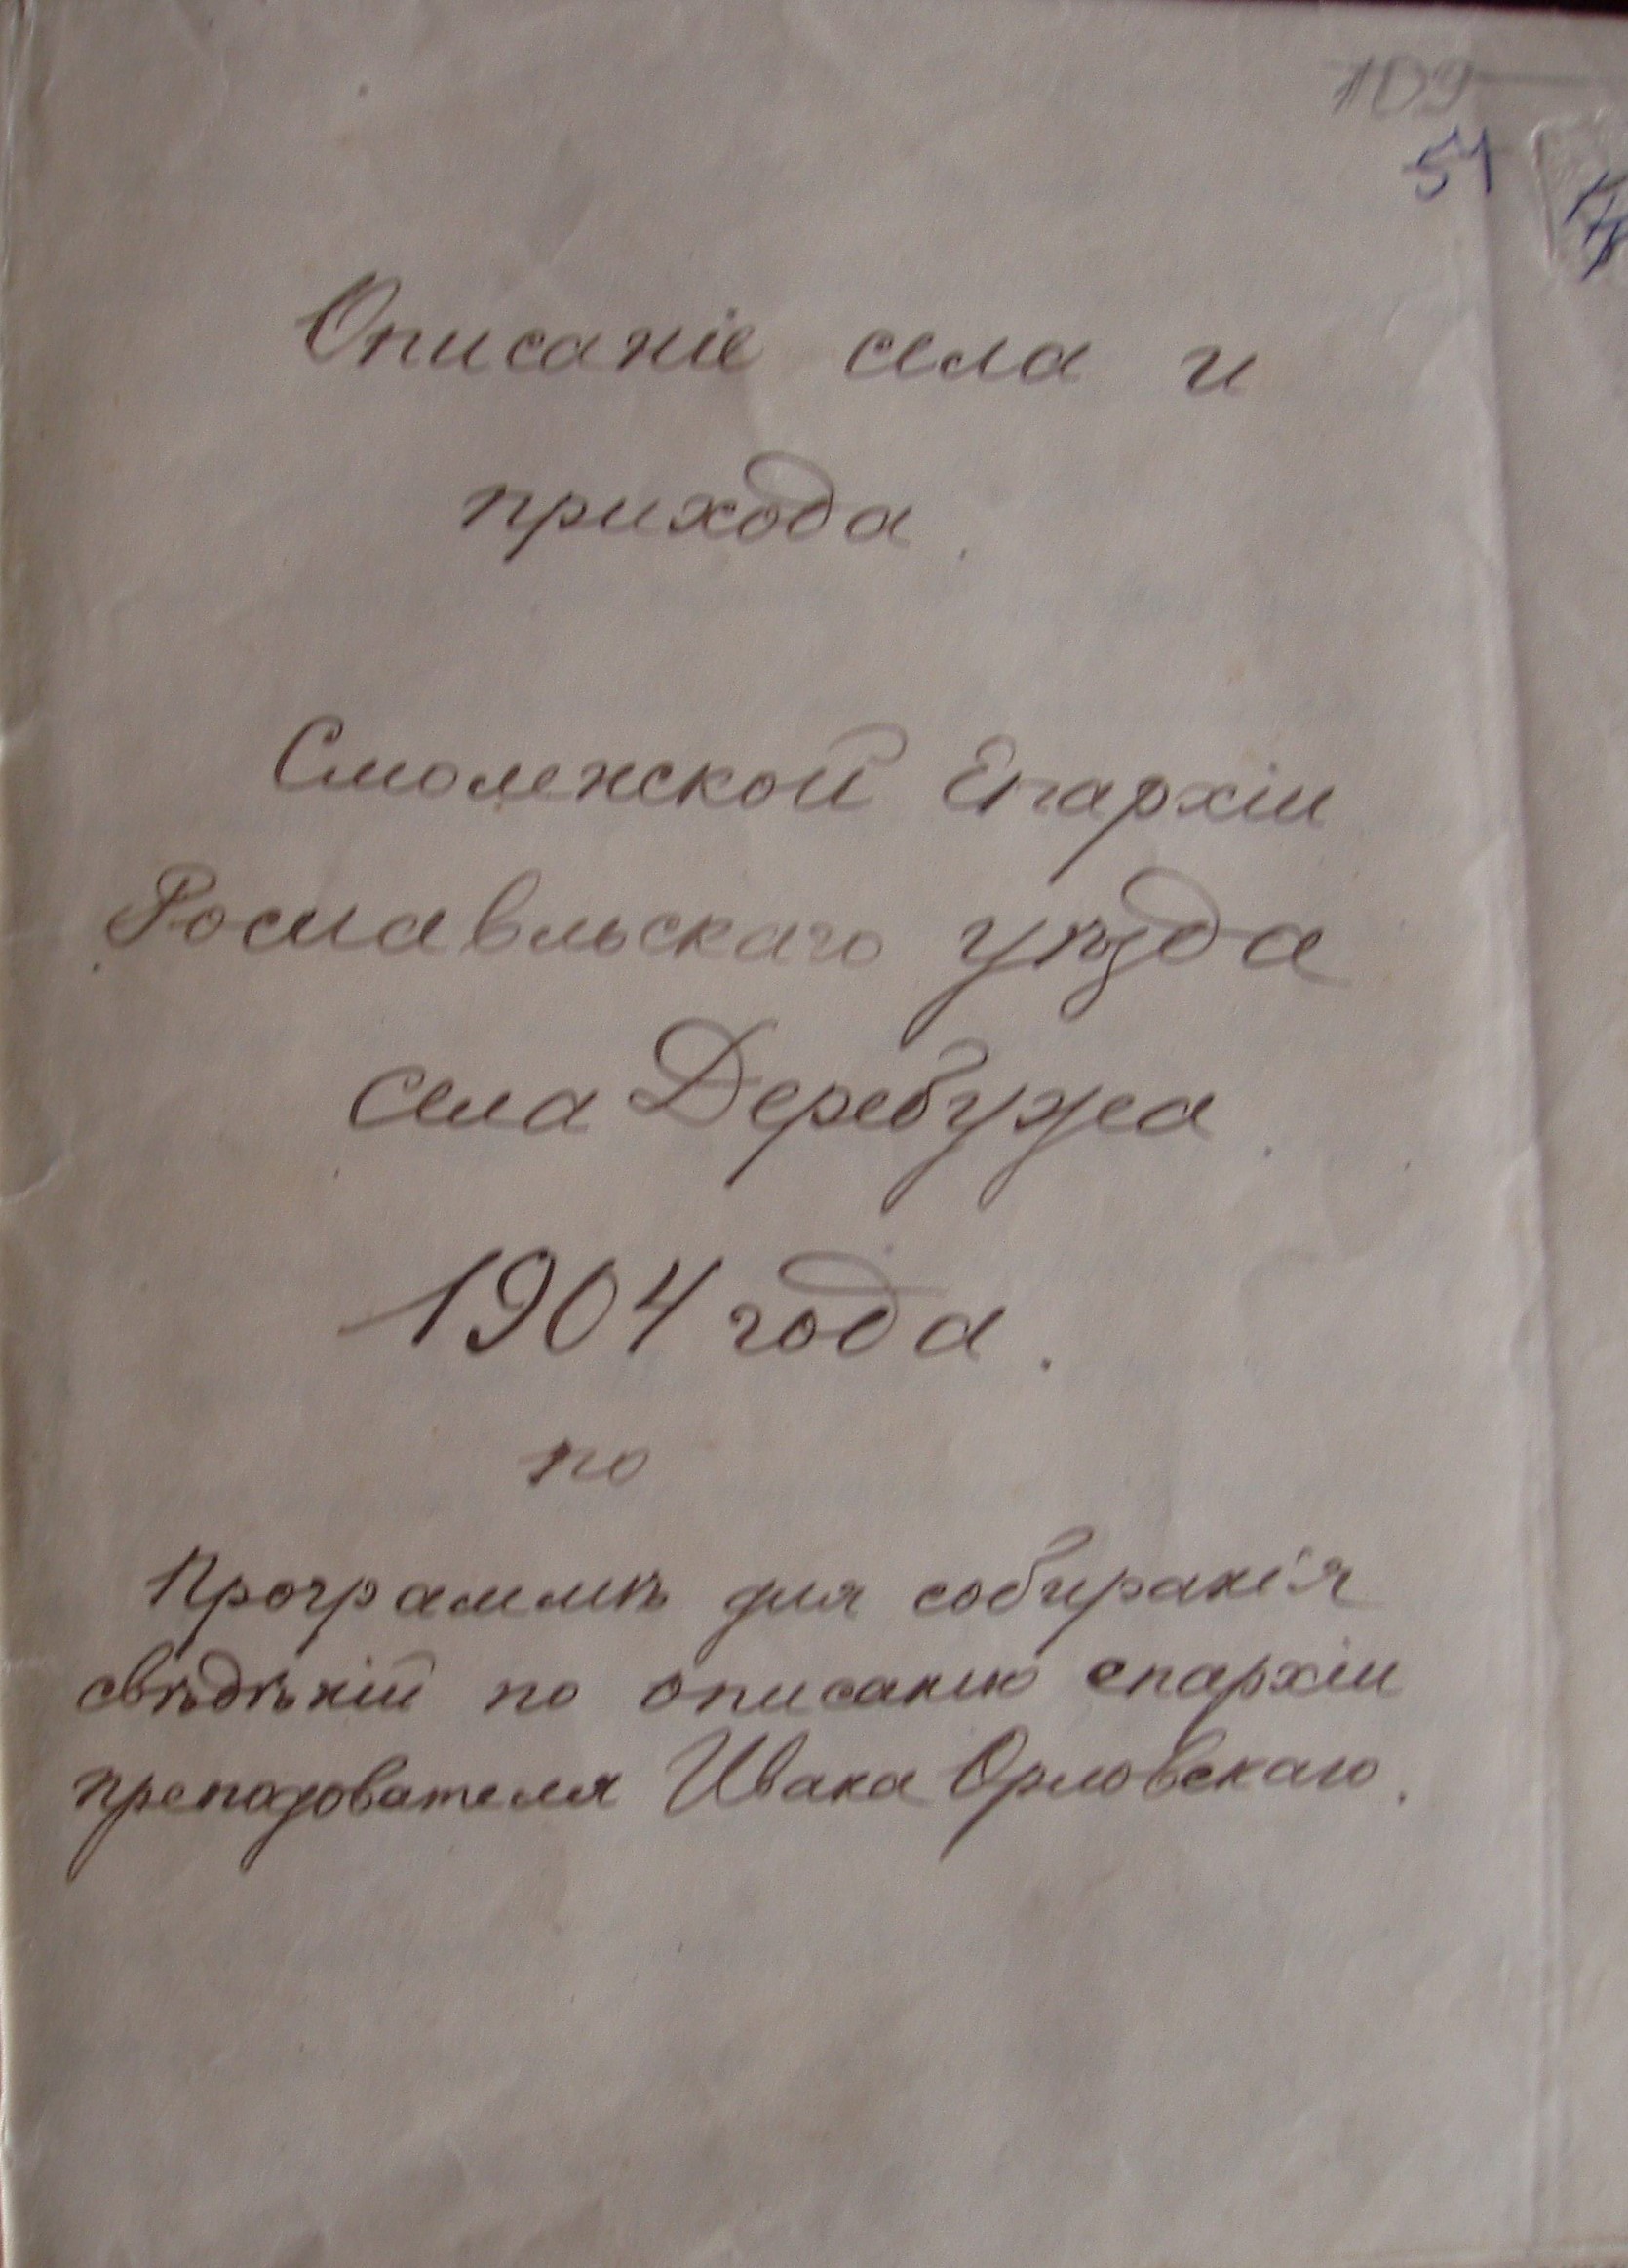 109
51
Описаніе села и
прихода.
Смоленской Епархіи
Рославльскаго уѣзда
села Деребужа.
1904 года.
по
Программѣ для собиранія
свѣдѣній по описанію епархіи
преподователя Ивана Орловскаго.